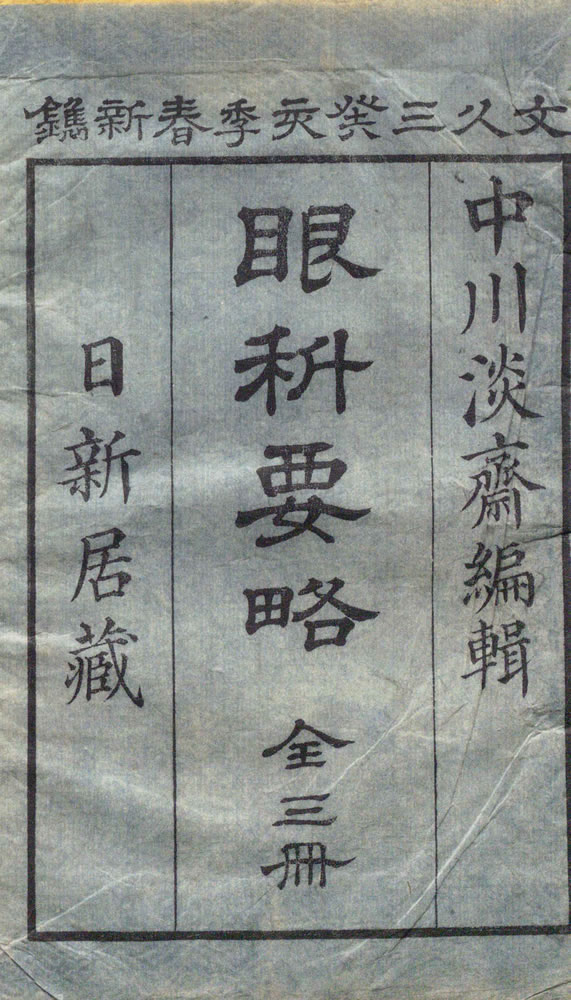 文久三癸亥季春新鐫
中川淡齋編輯
眼科要略 全三冊
日新居藏